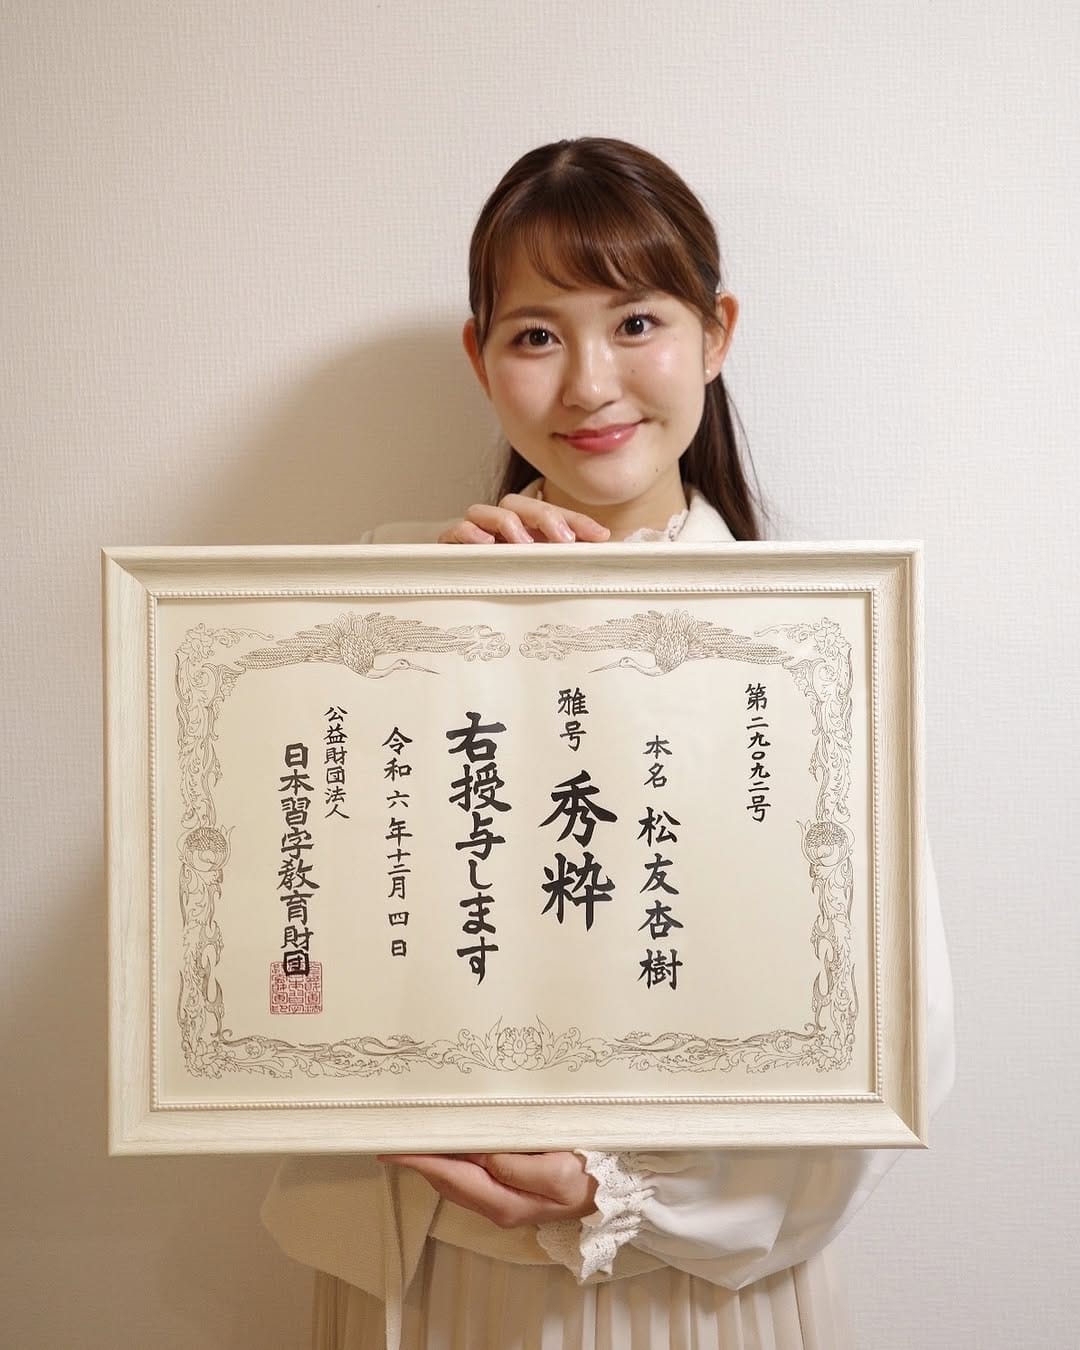 第二九〇九二号
本名 松友杏樹
雅号 秀粋
右授与します
令和六年十二月四日
公益財団法人
日本習字教育財団